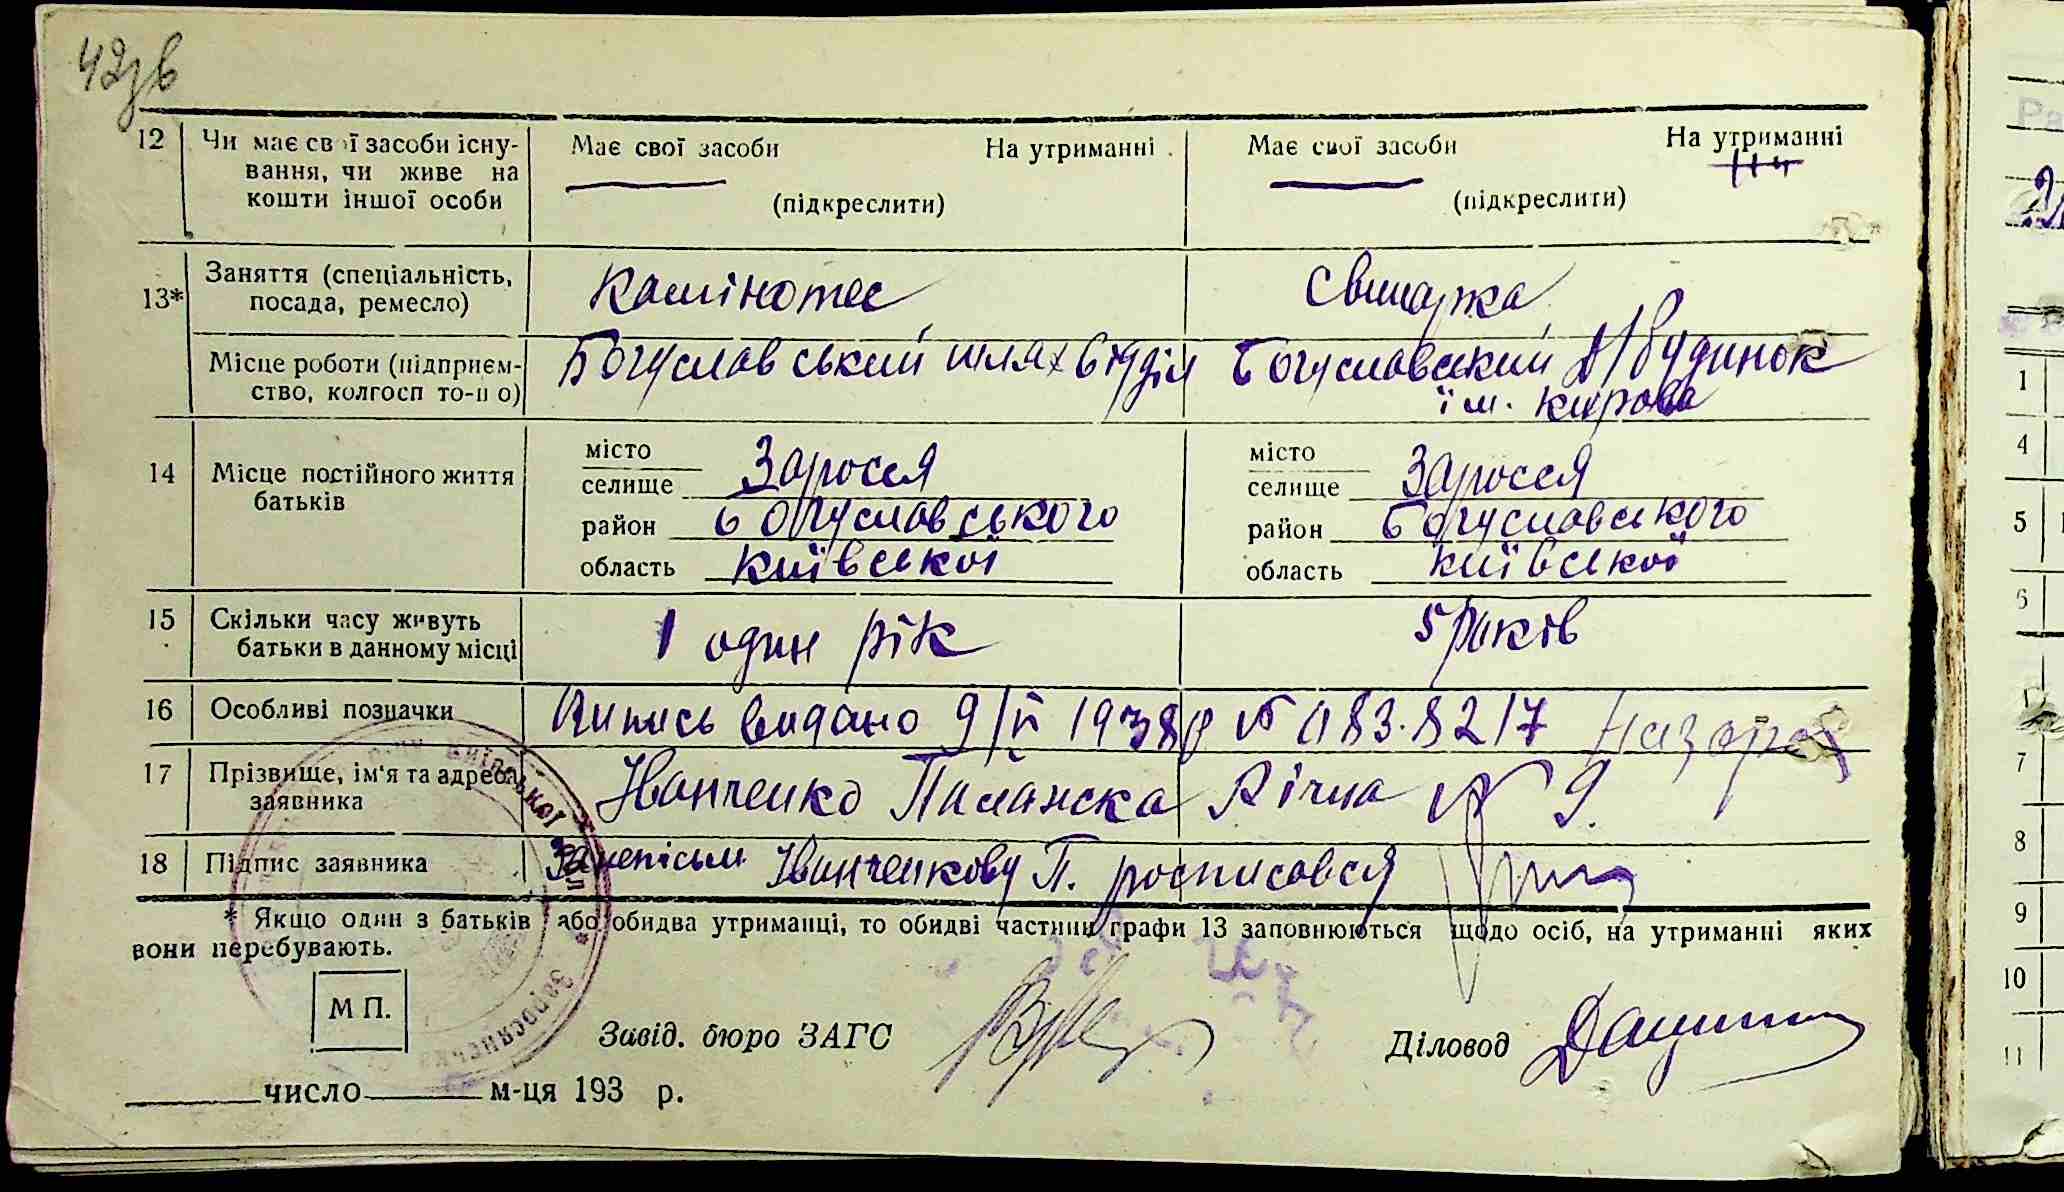 42зв
12 Чи має свої засоби існу- Має свої засоби На утриманні Має свої засоби На утриманні
вання, чи живе на
кошти іншої особи (підкреслити) (підкреслити)
13* Заняття (спеціальність, Камінотес Свинарка
посада, ремесло)
Місце роботи (підприєм- Богуславський шляхвідділ Богуславський Д/будинок
ство, колгосп то-що) ім. Кирова
14 Місце постійного життя місто Заросся місто Заросся
батьків селище селище
район Богуславського район Богуславського
область Київської область Київської
15 Скільки часу живуть 1 один рік 5 років
батьки в данному місці
16 Особливі позначки Випись видано 9/ІІ 1938р № 083.8217
17 Прізвище, ім'я та адреса Іванченко Палажка Річна № 9.
заявника
18 Підпис заявника За неписьм Іванченкову П. росписовся
* Якщо один з батьків або обидва утриманці, то обидві частини графи 13 заповнюються щодо осіб, на утриманні яких
вони перебувають.
М П.
Завід. бюро ЗАГС Діловод
число м-ця 193 р.
Київської
Заросянська
1
4
5
6
7
8
9
10
11